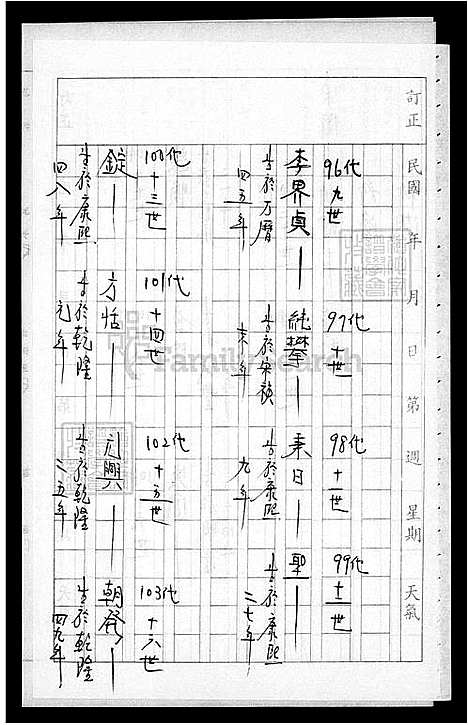 訂正
民國 年 月 日 第 週 星期 天氣
96代 九世
李界貞
生於万曆
四五年
97代 十世
純攀
生於
亥年
98代 十一世
秉日
生於康熙
九年
99代 十二世
聖
生於康熙
二七年
100代 十三世
錠
生於康熙
四八年
101代 十四世
方恬
生於乾隆
元年
102代 十五世
興
生於乾隆
二五年
103代 十六世
朝發
生於乾隆
四九年
FamilySearch